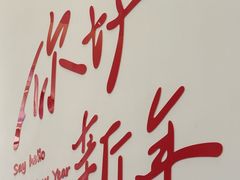 你好
Say hello
Year
新年